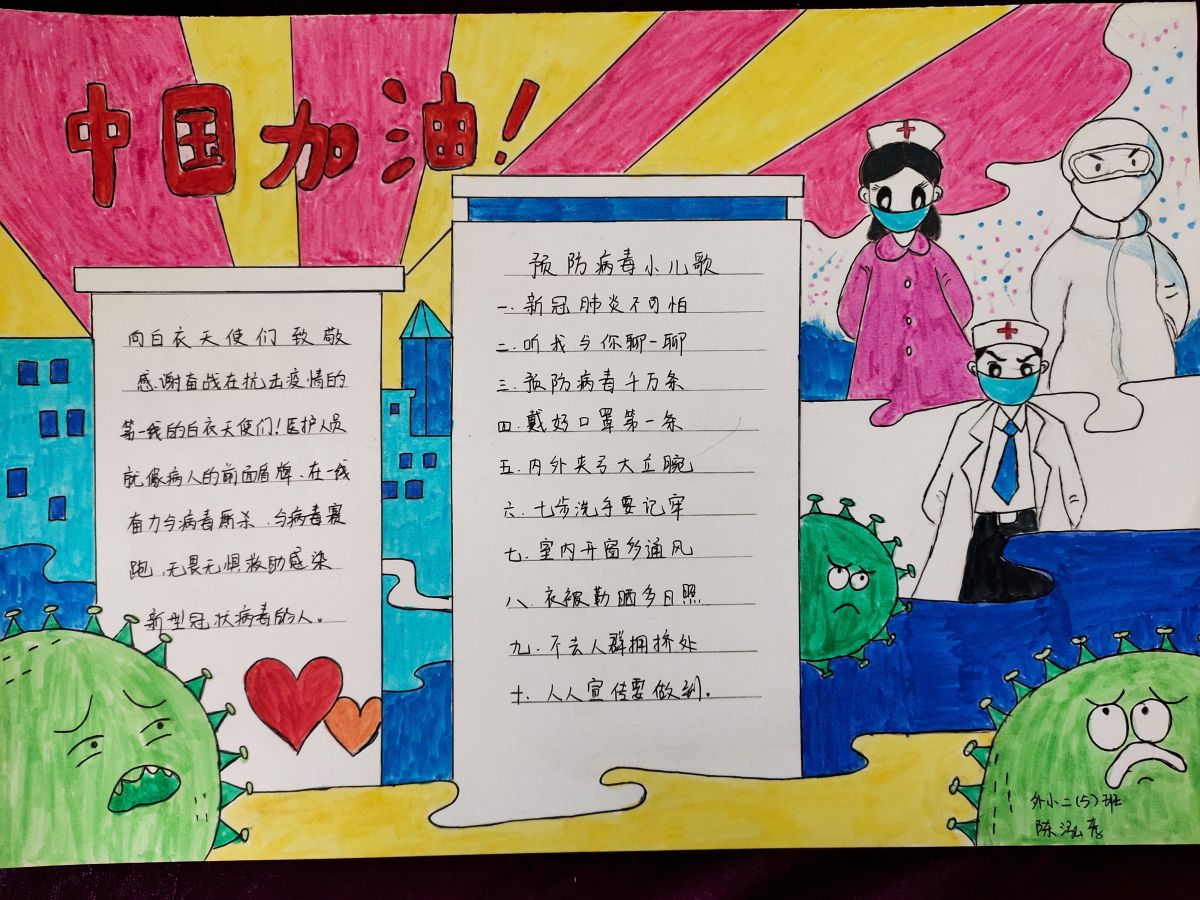 中国加油!
向白衣天使们致敬
感谢奋战在抗击疫情的
第一线的白衣天使们!医护人员
就像病人的前面盾牌、在一线
奋力与病毒厮杀、与病毒赛
跑、无畏无惧救助感染
新型冠状病毒的人。
预防病毒小儿歌
一.新冠肺炎不可怕
二.听我与你聊一聊
三.预防病毒千万条
四.戴好口罩第一条
五.内外夹弓大立腕
六.七步洗手要记牢
七.室内开窗多通风
八.衣被勤晒多日照
九.不去人群拥挤处
十.人人宣传要做到。
外小二(5)班
陈泓